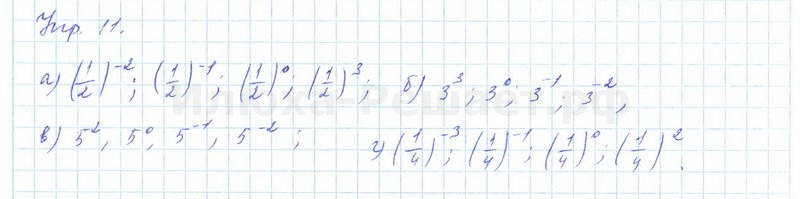 Упр. 11.
а) (1/2)^-2; (1/2)^-1; (1/2)^0; (1/2)^3; б) 3^3; 3^0; 3^-1; 3^-2,
Илюха-Решает.рф
в) 5^2, 5^0, 5^-1, 5^-2; г) (1/4)^-3; (1/4)^-1; (1/4)^0; (1/4)^2.